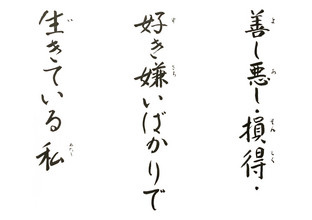 善し悪し・損得・
好き嫌いばかりで
生きている私